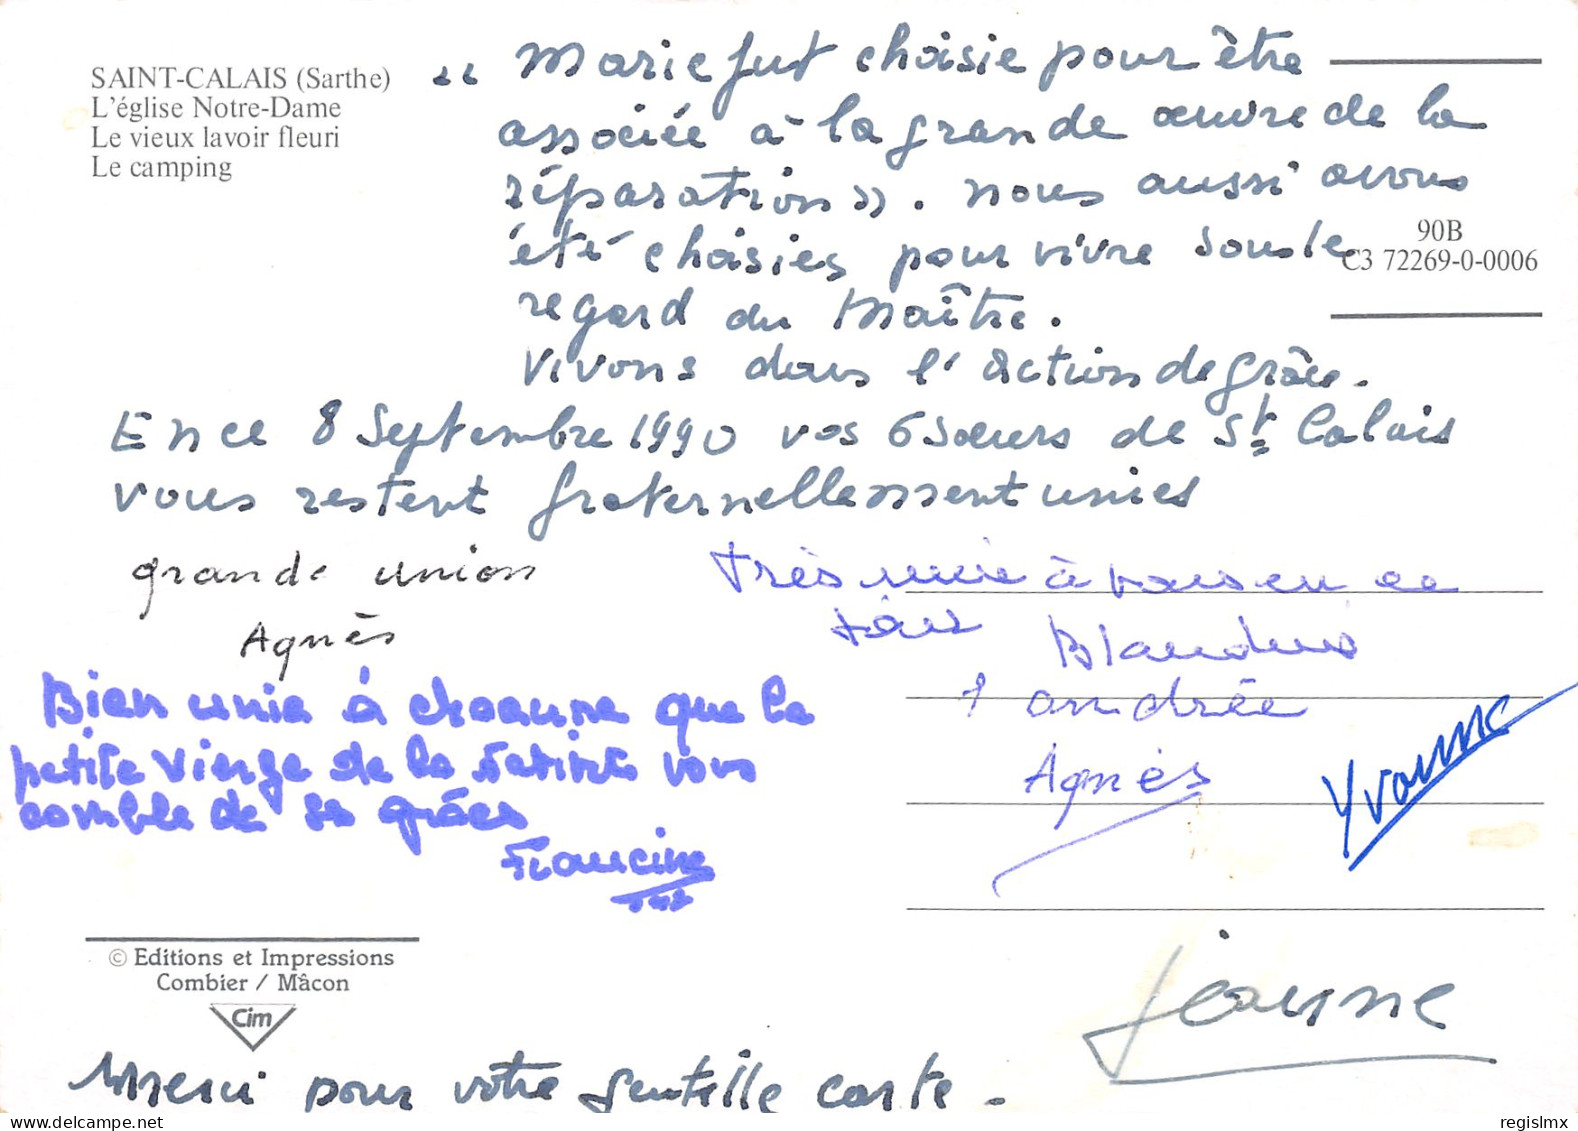 SAINT-CALAIS (Sarthe)
L'église Notre-Dame
Le vieux lavoir fleuri
Le camping
« Marie fut choisie pour être
associée à la grande œuvre de la
réparation ». nous aussi avons
été choisies pour vivre sous le
regard du Maître.
Vivons dans l'action de grâce.
90B
C3 72269-0-0006
En ce 8 Septembre 1990 vos 6 sœurs de St Calais
vous restent fraternellement unies
grande union
Agnès
Très unie à vous en ce
jour
& andrée
Agnès
Yvonne
Bien unie à chacune que la
petite Vierge de la vous
comble de sa grâces
Francine
Jeanne
© Editions et Impressions
Combier / Mâcon
Cim
Merci pour votre gentille carte.
regislmx